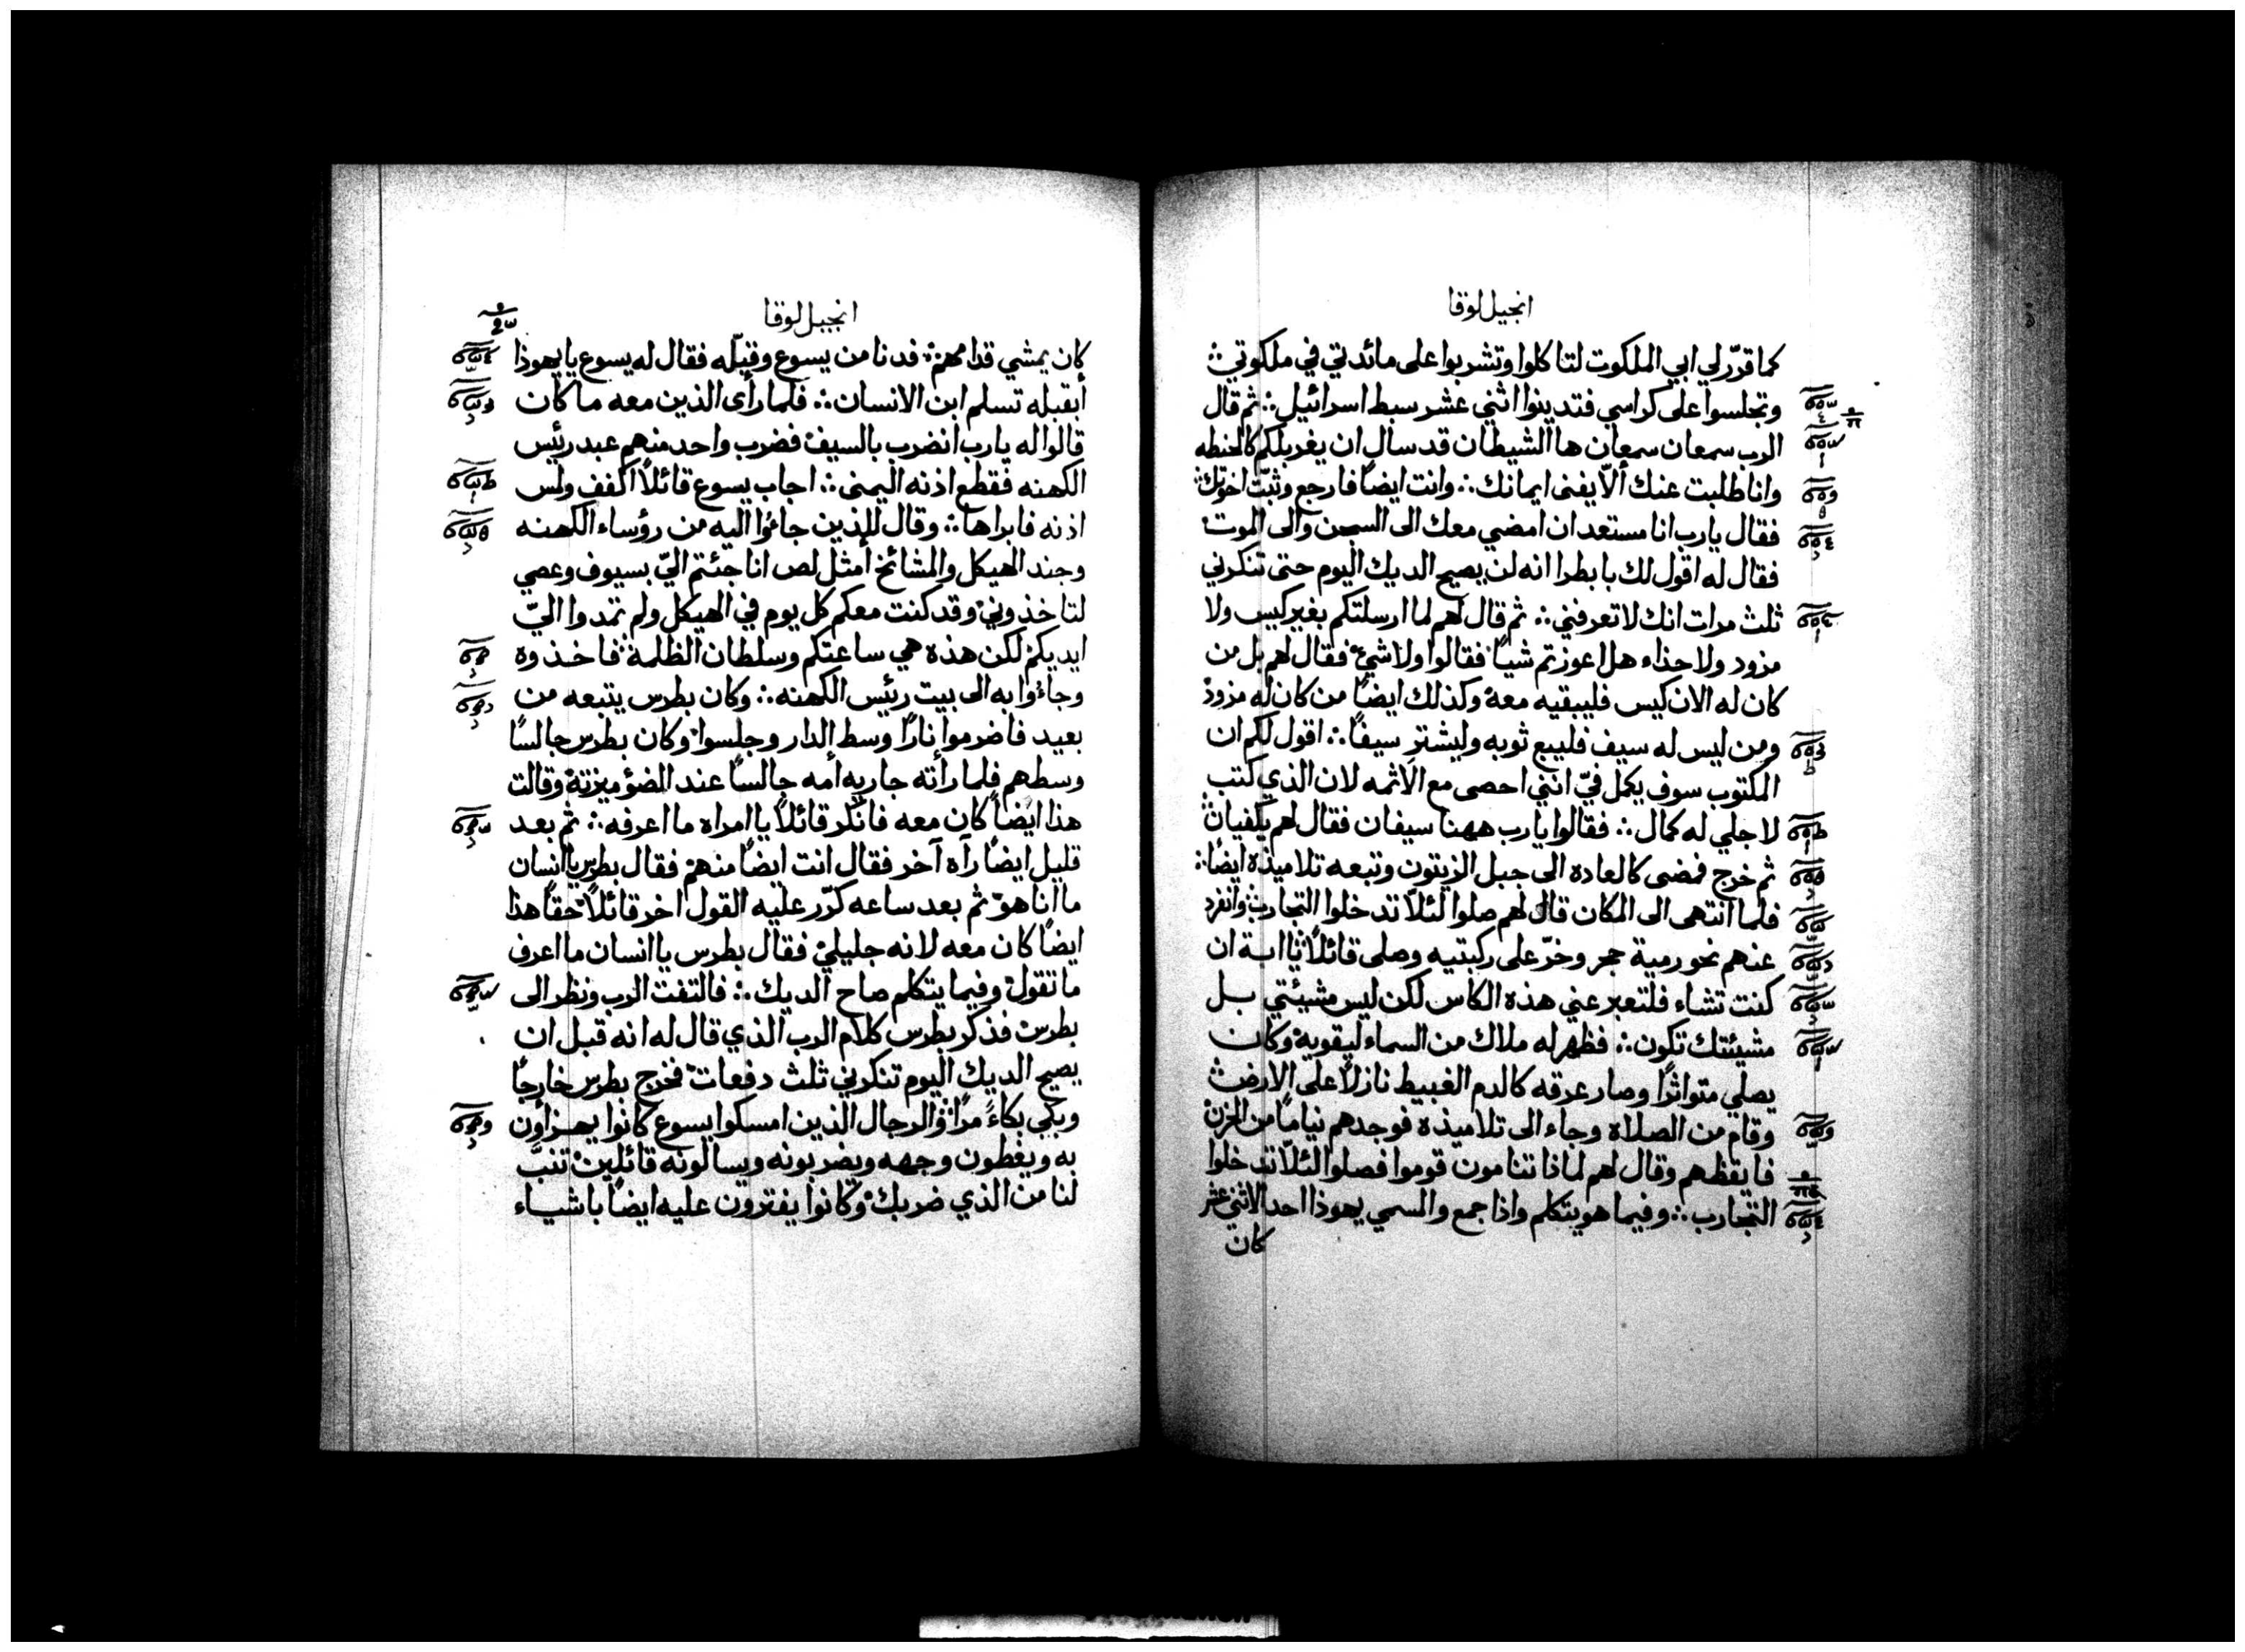 انجيل لوقا
كما قرّر لي ابي الملكوت لتاكلوا وتشربوا على مائدتي في ملكوتي
وتجلسوا على كراسي فتدينوا اثني عشر سبط اسرائيل ثم قال
الرب سمعان سمعان ها الشيطان قد سال ان يغربلكم كالحنطه
وانا طلبت عنك ألاّ يفنى ايمانك وانت ايضًا فارجع وثبّت اخوتك
فقال يارب انا مستعد ان امضي معك الى السجن والى الموت
فقال له اقول لك يا بطرا انه لن يصيح الديك اليوم حتى تنكرني
ثلث مرات انك لا تعرفني ثم قال لهم لما ارسلتكم بغير كيس ولا
مزود ولا حذاء هل اعوزتم شيًا فقالوا ولا شيء فقال لهم بل من
كان له الان كيس فليبقيه معه وكذلك ايضًا من كان له مزود
ومن ليس له سيف فليبع ثوبه وليشتر سيفًا اقول لكم ان
المكتوب سوف يكمل فيّ انني احصى مع الاثمه لان الذي كتب
لاجلي له كمال فقالوا يارب ههنا سيفان فقال لهم يكفيان
ثم خرج فمضى كالعاده الى جبل الزيتون وتبعه تلاميذه ايضًا
فلما انتهى الى المكان قال لهم صلوا لئلاّ تدخلوا التجارب وانفرد
عنهم نحو رمية حجر وخرّ على ركبتيه وصلى قائلًا يا ابة ان
كنت تشاء فلتعبر عني هذه الكاس لكن ليس مشيئتي بل
مشيئتك تكون فظهر له ملاك من السماء ليقويه وكان
يصلي متواترًا وصار عرقه كالدم الغبيط نازلًا على الارض
وقام من الصلاة وجاء الى تلاميذه فوجدهم نيامًا من الحزن
فايقظهم وقال لهم لماذا تنامون قوموا فصلوا لئلاّ تدخلوا
التجارب وفيما هو يتكلم واذا جمع والمسمي يهوذا احد الاثني عشر
كان
انجيل لوقا
كان يمشي قدامهم فدنا من يسوع وقبّله فقال له يسوع يا يهوذا
أبقبله تسلم ابن الانسان فلما رأى الذين معه ما كان
قالوا له يارب انضرب بالسيف فضرب واحد منهم عبد رئيس
الكهنه فقطع اذنه اليمنى اجاب يسوع قائلًا اكفف ولمس
اذنه فابراها وقال للذين جاؤا اليه من رؤساء الكهنه
وجند الهيكل والمشائخ أمثل لص انا جئتم اليّ بسيوف وعصي
لتاخذوني وقد كنت معكم كل يوم في الهيكل ولم تمدوا اليّ
ايديكم لكن هذه هي ساعتكم وسلطان الظلمة فاخذوه
وجاؤا به الى بيت رئيس الكهنه وكان بطرس يتبعه من
بعيد فاضرموا نارًا وسط الدار وجلسوا وكان بطرس جالسًا
وسطهم فلما رأته جاريه أمه جالسًا عند الضؤ ميزته وقالت
هذا ايضًا كان معه فانكر قائلًا يا امراه ما اعرفه ثم بعد
قليل ايضًا رآه آخر فقال انت ايضًا منهم فقال بطرس يا انسان
ما انا هو ثم بعد ساعه كرّر عليه القول اخر قائلًا حقًا هذا
ايضًا كان معه لانه جليلي فقال بطرس يا انسان ما اعرف
ما تقول وفيما يتكلم صاح الديك فالتفت الرب ونظر الى
بطرس فذكر بطرس كلام الرب الذي قال له انه قبل ان
يصيح الديك اليوم تنكرني ثلث دفعات فخرج بطرس خارجًا
وبكى بكاءً مرًا والرجال الذين امسكوا يسوع كانوا يهزأون
به ويغطون وجهه ويضربونه ويسالونه قائلين تنبَّ
لنا من الذي ضربك وكانوا يفترون عليه ايضًا باشياء